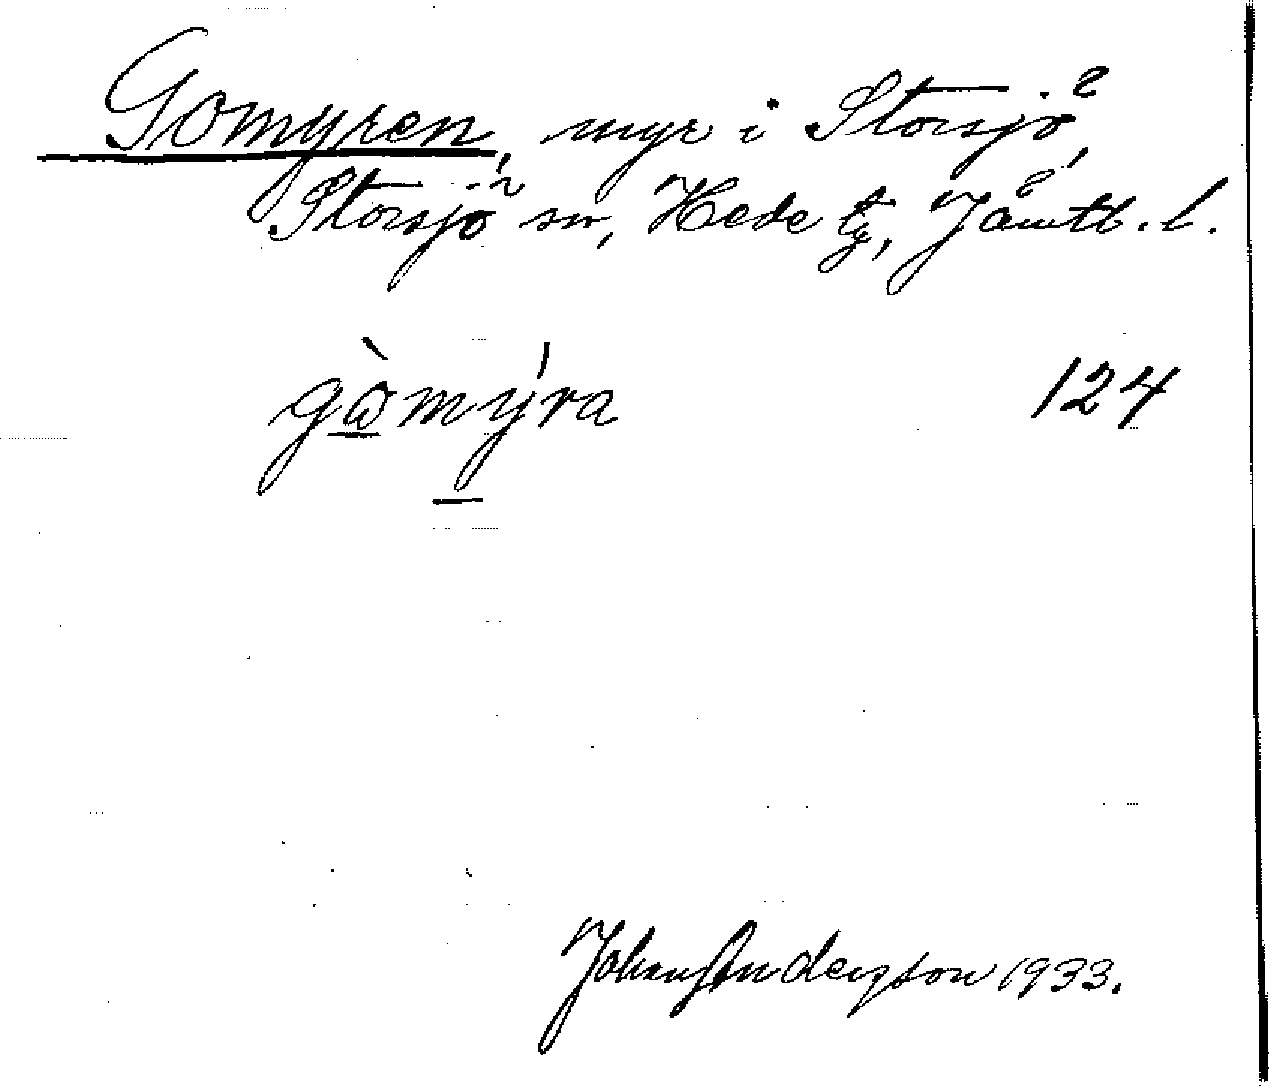 Gomyren, myr i Storsjö,
Storsjö sn, Hede tg, Jämtl. l.
gòmýra 124
Johan Anderson 1933.